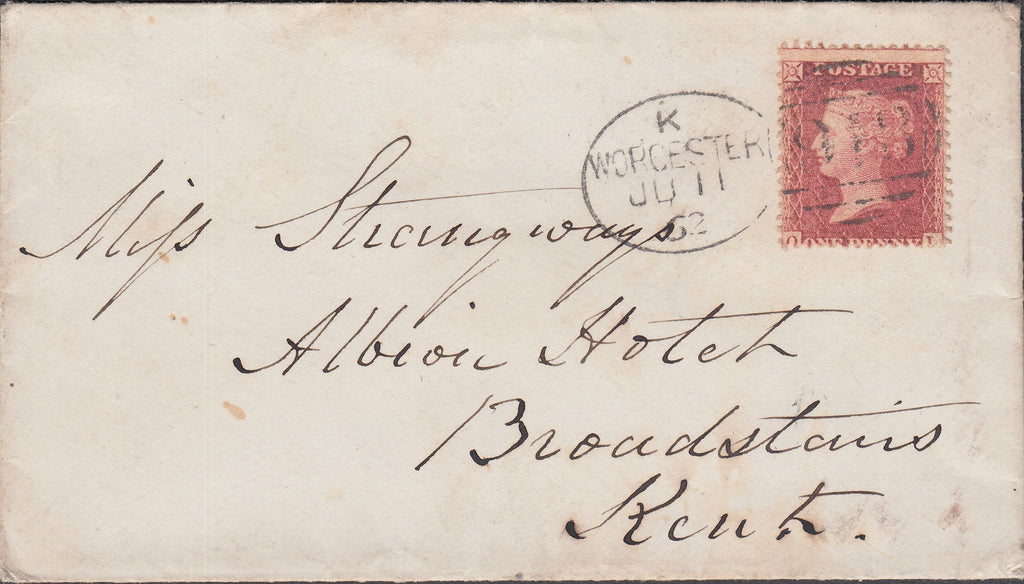 POSTAGE
K
WORCESTER
JU 11
62
918
ONE PENNY
Miss Strangways
Albion Hotel
Broadstairs
Kent.